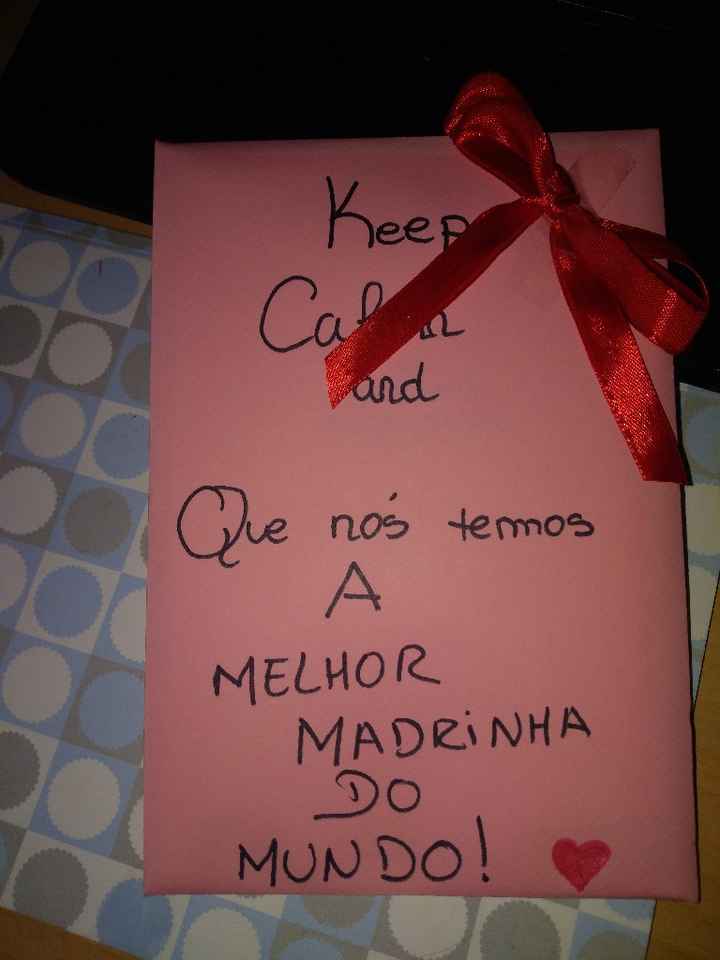 Keep
Calm
and
Que nós temos
A
MELHOR
MADRiNHA
DO
MUNDO!